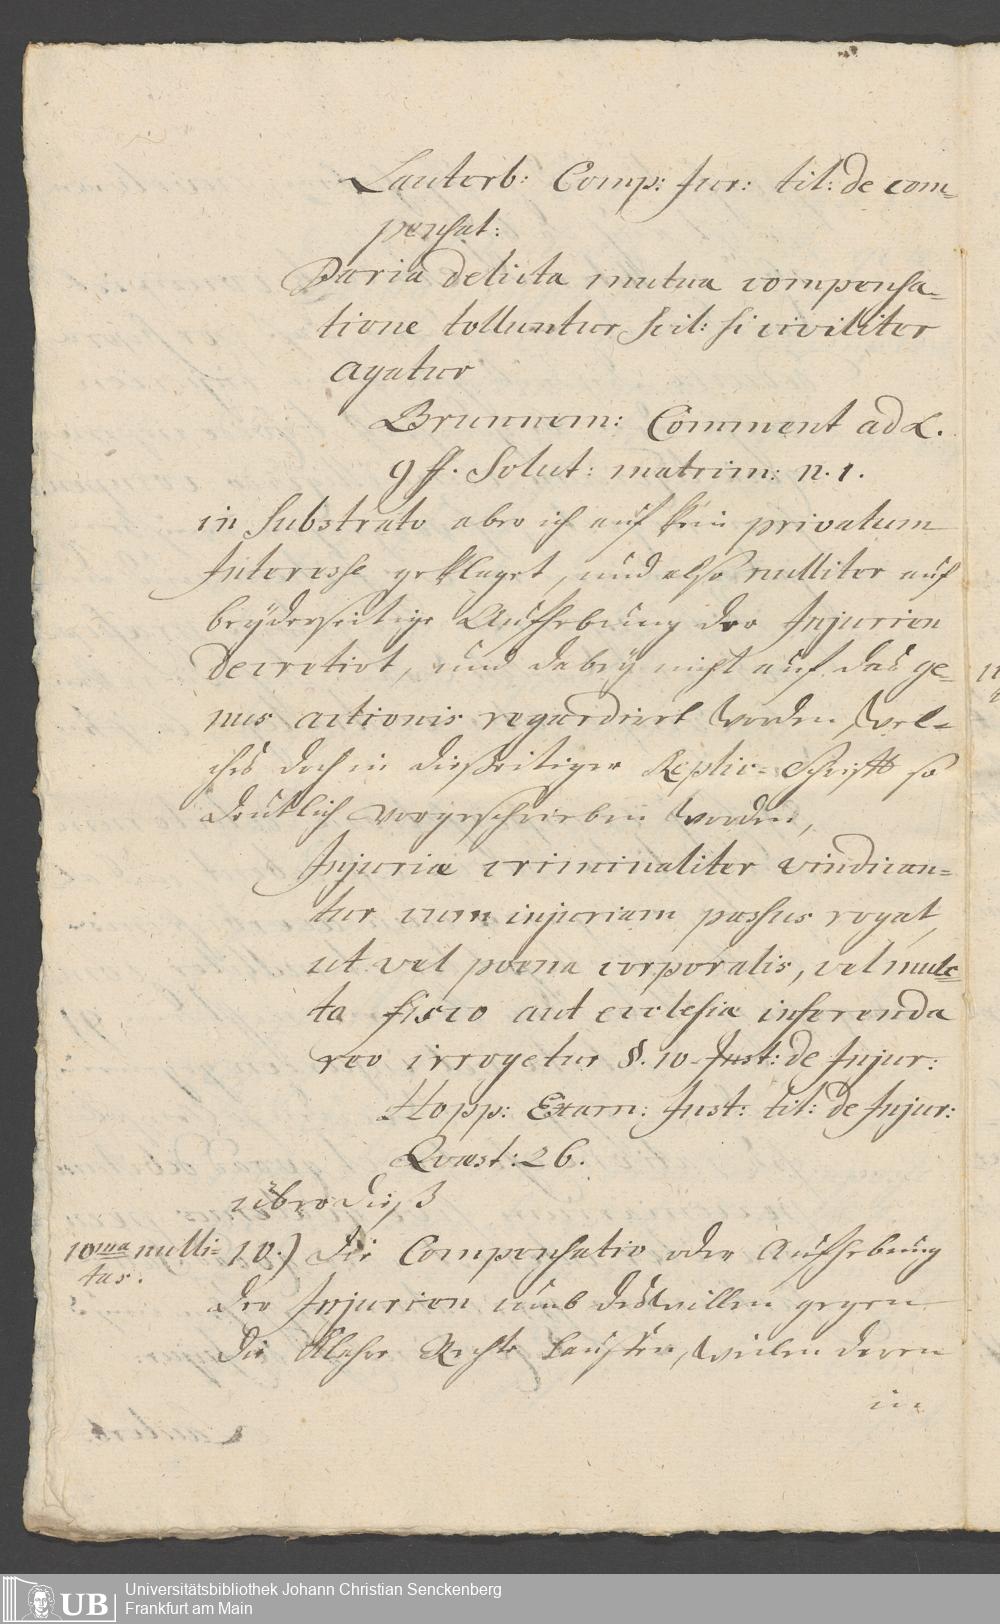 Lauterb: Comp: Jur: tit: de com-
pensat:
Paria delicta mutua compensa-
tione tolluntur scil: si civiliter
agatur
Brunnem: Comment ad L.
9 ff. Solut: matrim: n. 1.
in Substrato aber ich auf kein privatum
Interesse geklaget, und also nulliter auf
beÿderseitige Aufhebung der Injurien
decretirt, und dabeÿ nicht auf das ge-
nus actionis regardirt worden, wel-
ches doch in dießseitiger Replic-Schrifft so
deutlich vorgeschrieben worden,
Injuriæ criminaliter vindican-
tur cum injuriam passus rogat,
ut vel poena corporalis, vel mulc-
ta fisco aut ecclesiæ inferenda
reo irrogetur §. 10. Inst: de Injur:
Hopp: Exam: Inst: tit: de Injur:
Quæst: 26.
über dieß
10ma nulli-
tas.
10.) Die Compensatio oder Aufhebung
der Injurien umb deswillen gegen
die Klahre Rechte lauffen, weilen deren
in
Universitätsbibliothek Johann Christian Senckenberg
Frankfurt am Main
UB